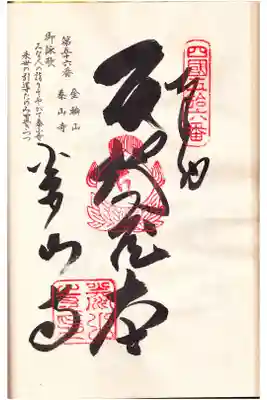 四國五拾六番
奉納
泰山寺
第五十六番
金輪山
泰山寺
御詠歌
みな人の詣りてやがて泰山寺
来世の引導たのみおきつつ